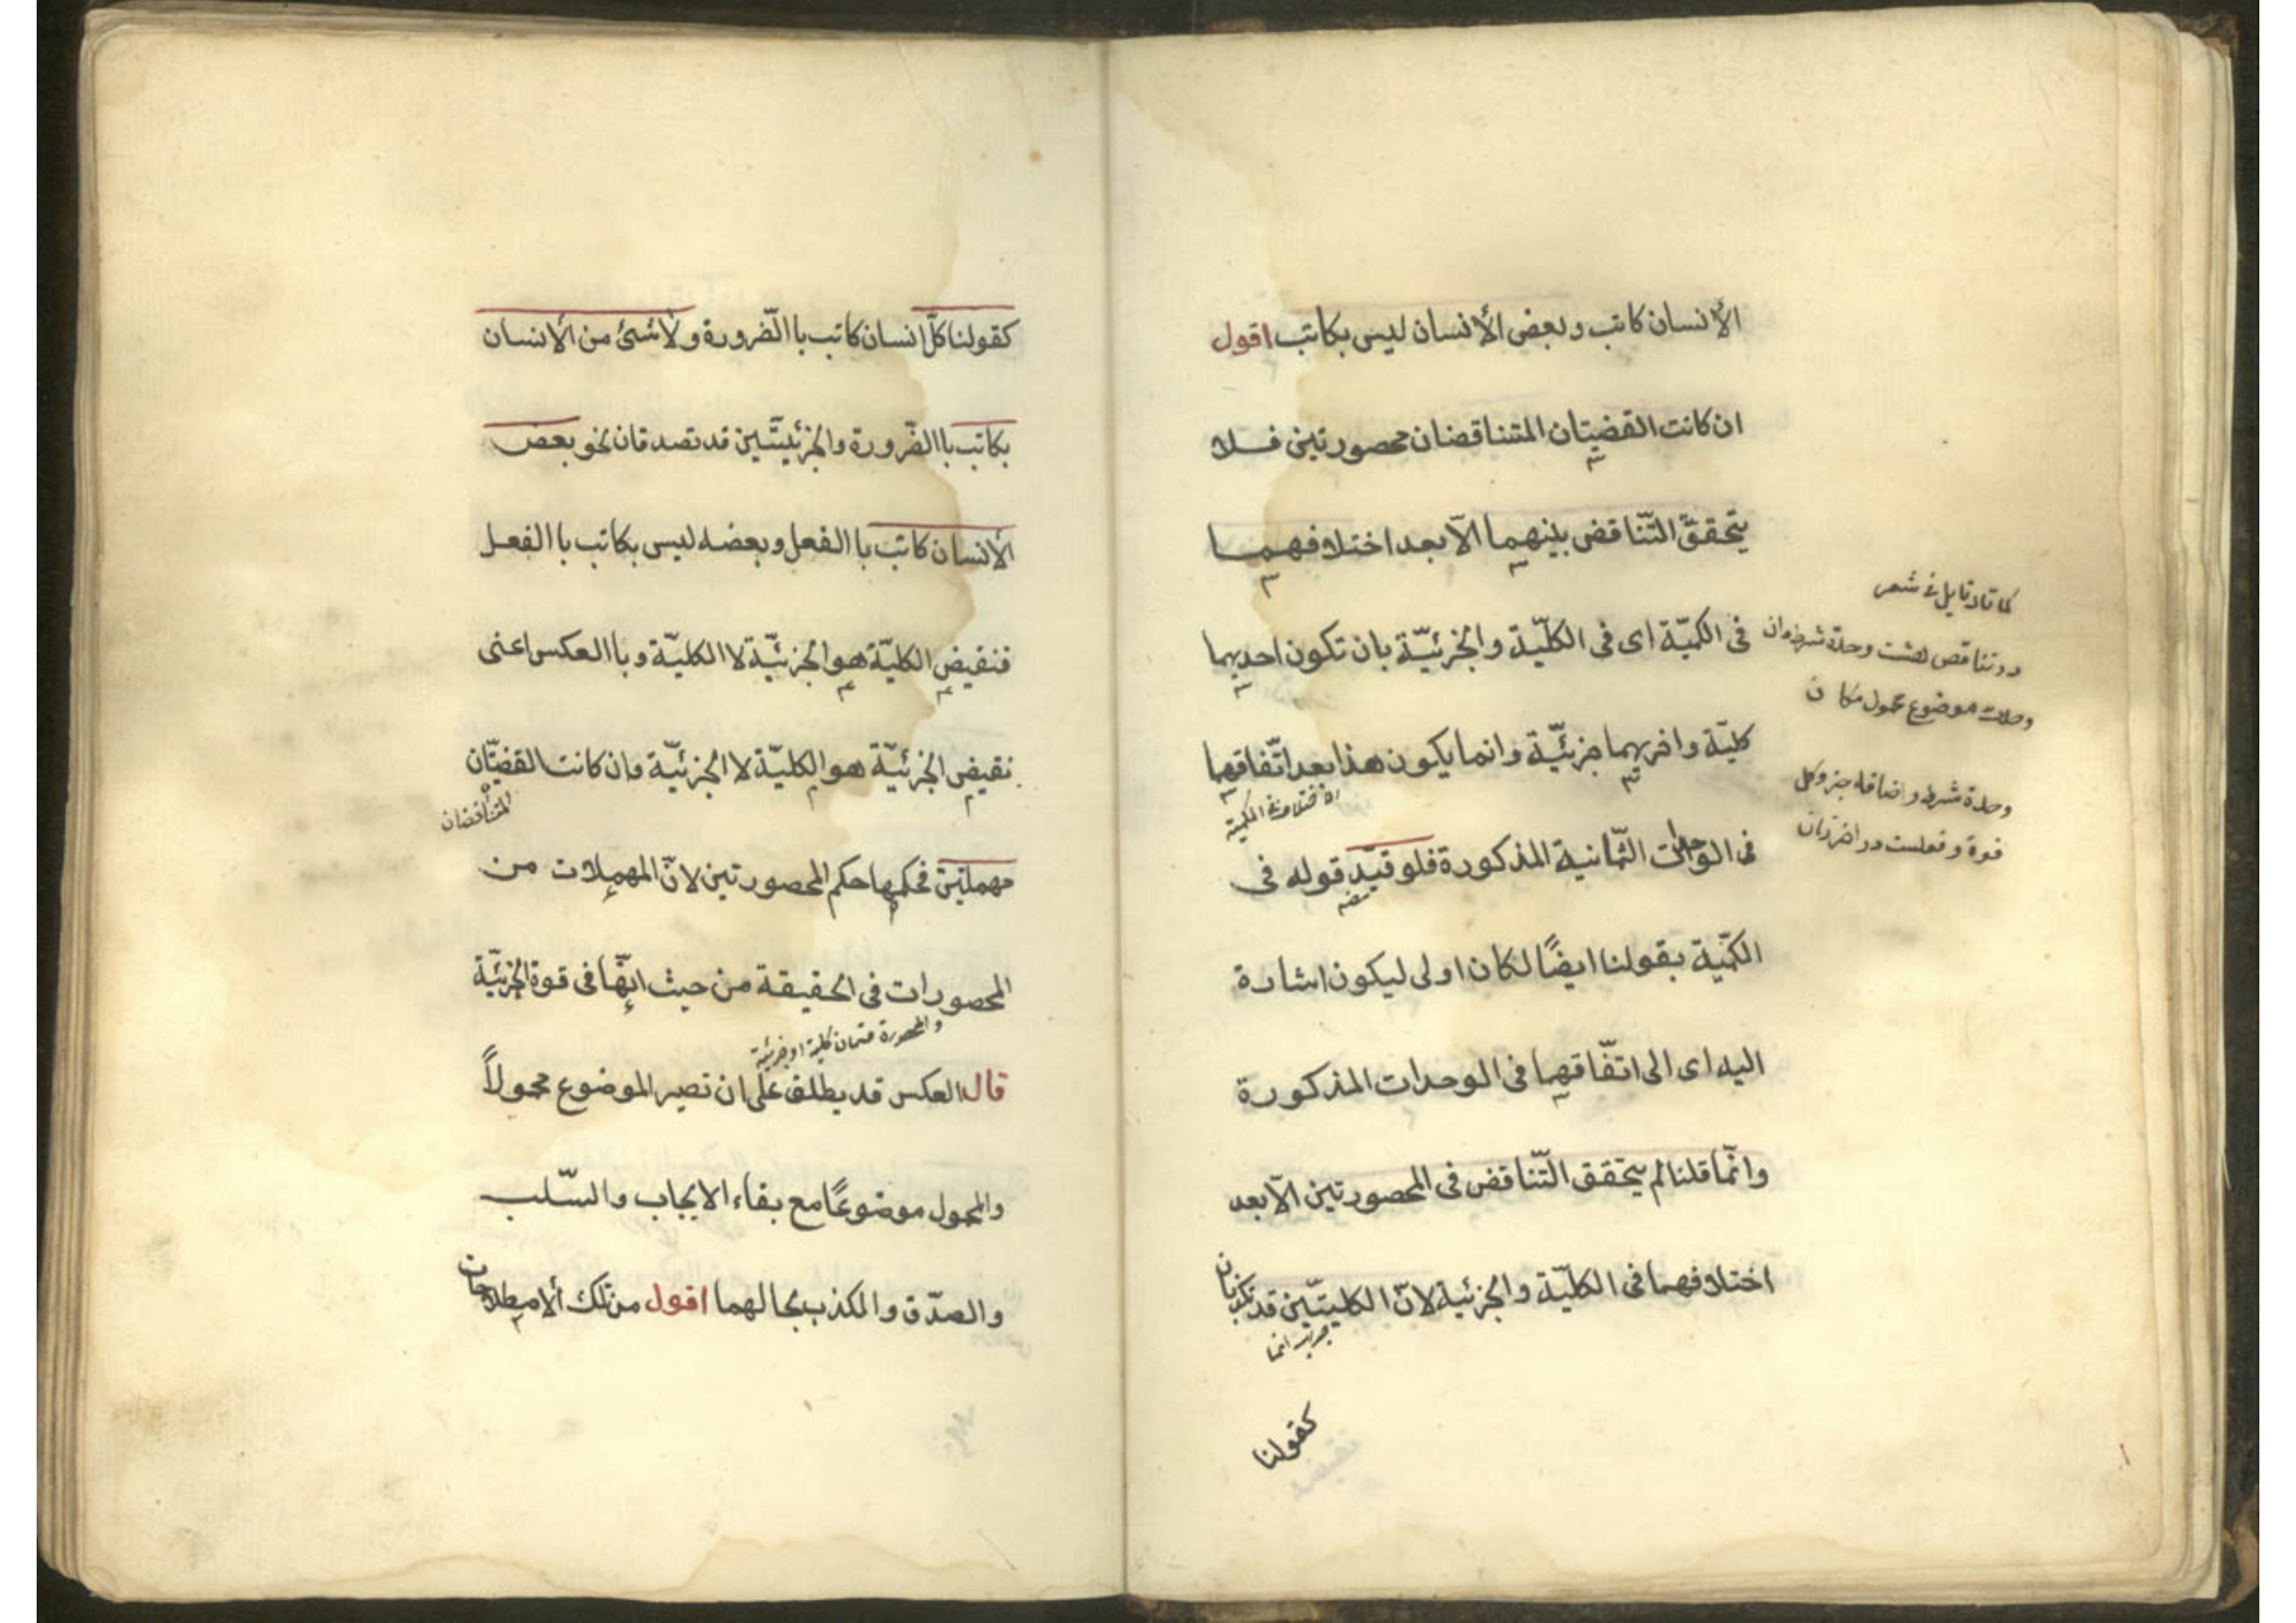 الأنسان كاتب وبعض الأنسان ليس بكاتب اقول
ان كانت القضيتان المتناقضان محصورتين فلا
يتحقق التّناقض بينهما الّا بعد اختلافهما
فى الكميّة اى فى الكلّيّة والجزئيّة بان تكون احديهما
كليّة واخريهما جزئيّة وانما يكون هذا بعد اتّفاقهما
الاختلاف فى الكمية
فى الوحدات الثّمانية المذكورة فلو قيّد قوله فى
الكّمية بقولنا ايضًا لكان اولى ليكون اشارة
اليه اى الى اتّفاقهما فى الوحدات المذكورة
وانّما قلنا لم يتحقق التّناقض فى المحصورتين الّا بعد
اختلافهما فى الكليّة والجزئية لانّ الكليتّين قد تكذبان
كقولنا
در تناقض هشت وحدة شرط دان
وحدت موضوع محمول مكان
وحدة شرط واضافه جزء وكل
قوة وفعلست در اخر زمان
كقولنا كلّ انسان كاتب باالضّرورة ولأشئ من الأنسان
بكاتب باالضّرورة والجزئيتّين قد تصدقان نحو بعض
الأنسان كاتب باالفعل وبعضه ليس بكاتب باالفعل
فنقيض الكليّة هو الجزئيّة لا الكليّة وباالعكس اعنى
نقيض الجزئيّة هو الكليّة لا الجزئيّة وان كانت القضيّتان
المتناقضان
مهملتين فحكمها حكم المحصورتين لانّ المهملات من
المحصورات فى الحقيقة من حيث انّها فى قوة الجزئيّة
والمحصورة قسمان كلية او جزئية
قال العكس قد يطلق على ان تصير الموضوع محمولاً
والمحمول موضوعًا مع بقاء الايجاب والسّلب
والصدّق والكذب بحالهما اقول من تلك ألاصطلاحات